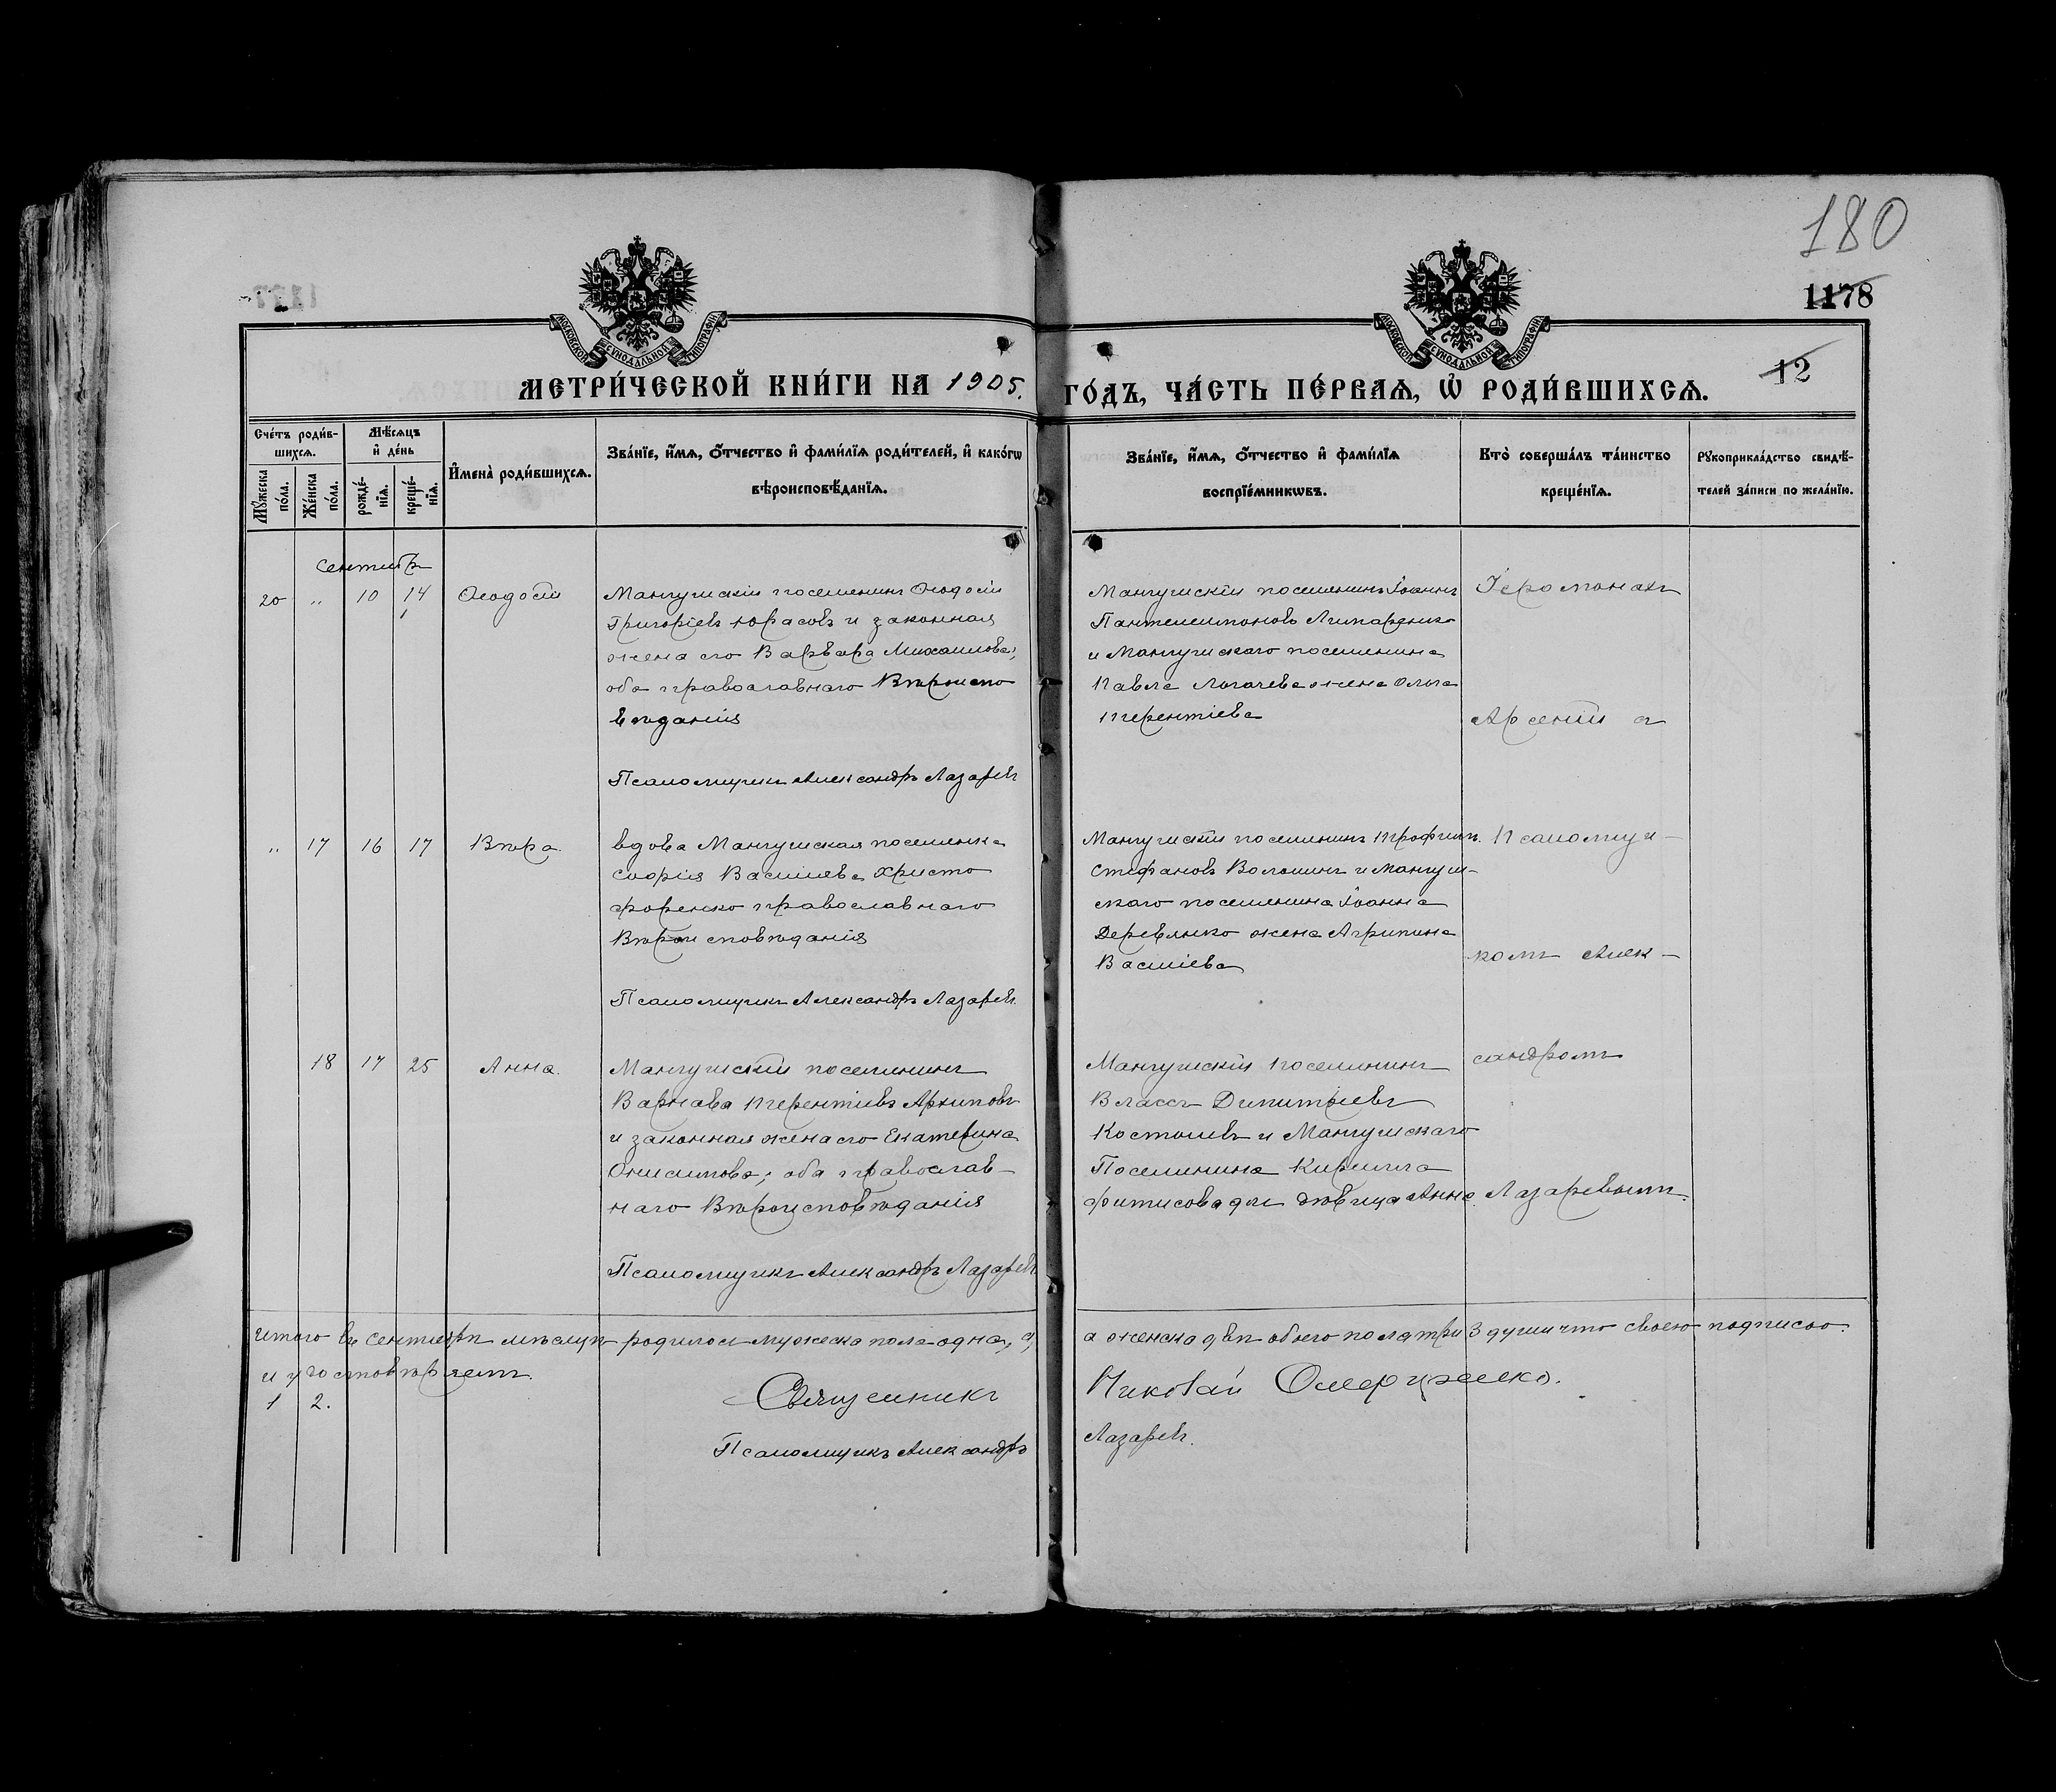 180
1178
12
МОСКОВСКОЙ СѴНОДАЛЬНОЙ ТИПОГРАФІИ
МОСКОВСКОЙ СѴНОДАЛЬНОЙ ТИПОГРАФІИ
МЕТРИ́ЧЕСКОЙ КНИ́ГИ НА 1905. ГО́ДЪ, ЧА́СТЬ ПЕ́РВАЯ, Ѡ РОДИ́ВШИХСЯ.
Сче́тъ роди́в-
шихся.
Мꙋжеска по́ла.
Же́нска по́ла.
Мѣ́сяцъ и де́нь
рожде́-нїя.
креще́-нїя.
Имена̀ роди́вшихся.
Зва́нїе, и́мя, о́тчество и фами́лїя роди́телей, и како́гѡ
вѣроисповѣ́данїя.
Зва́нїе, и́мя, о́тчество и фами́лїя
воспрїе́мникѡвъ.
Кто̀ соверша́лъ та́инство
креще́нїя.
Рꙋкоприкла́дство свидѣ́-
телей за́писи по жела́нїю.
Сентябрь
20 „ 10 14 Ѳеодосій
Мангушскій поселенинъ Ѳеодосій
Григоріевъ Юрасовъ и законная
жена его Варвара Михаилова;
оба православнаго Вѣроиспо
вѣданія
Псаломщикъ Александръ Лазаревъ
Мангушскій поселенинъ Іоаннъ
Пантелеимоновъ
и Мангушскаго поселенина
Павла Логачева жена Ольга
Терентіева
Іеромонахъ
Арсеній а
„ 17 16 17 Вѣра
вдова Мангушская поселенка
Софія Василіева Христо
форенко православнаго
Вѣроисповѣданія
Псаломщикъ Александръ Лазаревъ.
Мангушскій поселенинъ Трофимъ
Стефановъ Волошинъ и Мангуш-
скаго поселенина Іоанна
Деревянко жена Агрипина
Василіева
Псаломщи-
комъ Алек-
18 17 25 Анна.
Мангушскій поселенинъ
Варнава Терентіевъ Архиповъ
и законная жена его Екатерина
Онисимова; оба православ-
наго Вѣроисповѣданія
Псаломщикъ Александръ Лазаревъ
Мангушскій поселенинъ
Власъ Димитріевъ
и Мангушскаго
Поселенина Кирилла
Фитисова дочь дѣвица Анна.
сандромъ
Лазаревымъ.
Итого въ Сентябрѣ мѣсяцѣ родилось мужеска пола одна, а женска двѣ обоего пола три 3 души что своею подписью
и удостовѣряемъ.
1 2.
Священникъ Николай
Псаломщикъ Александръ Лазаревъ.